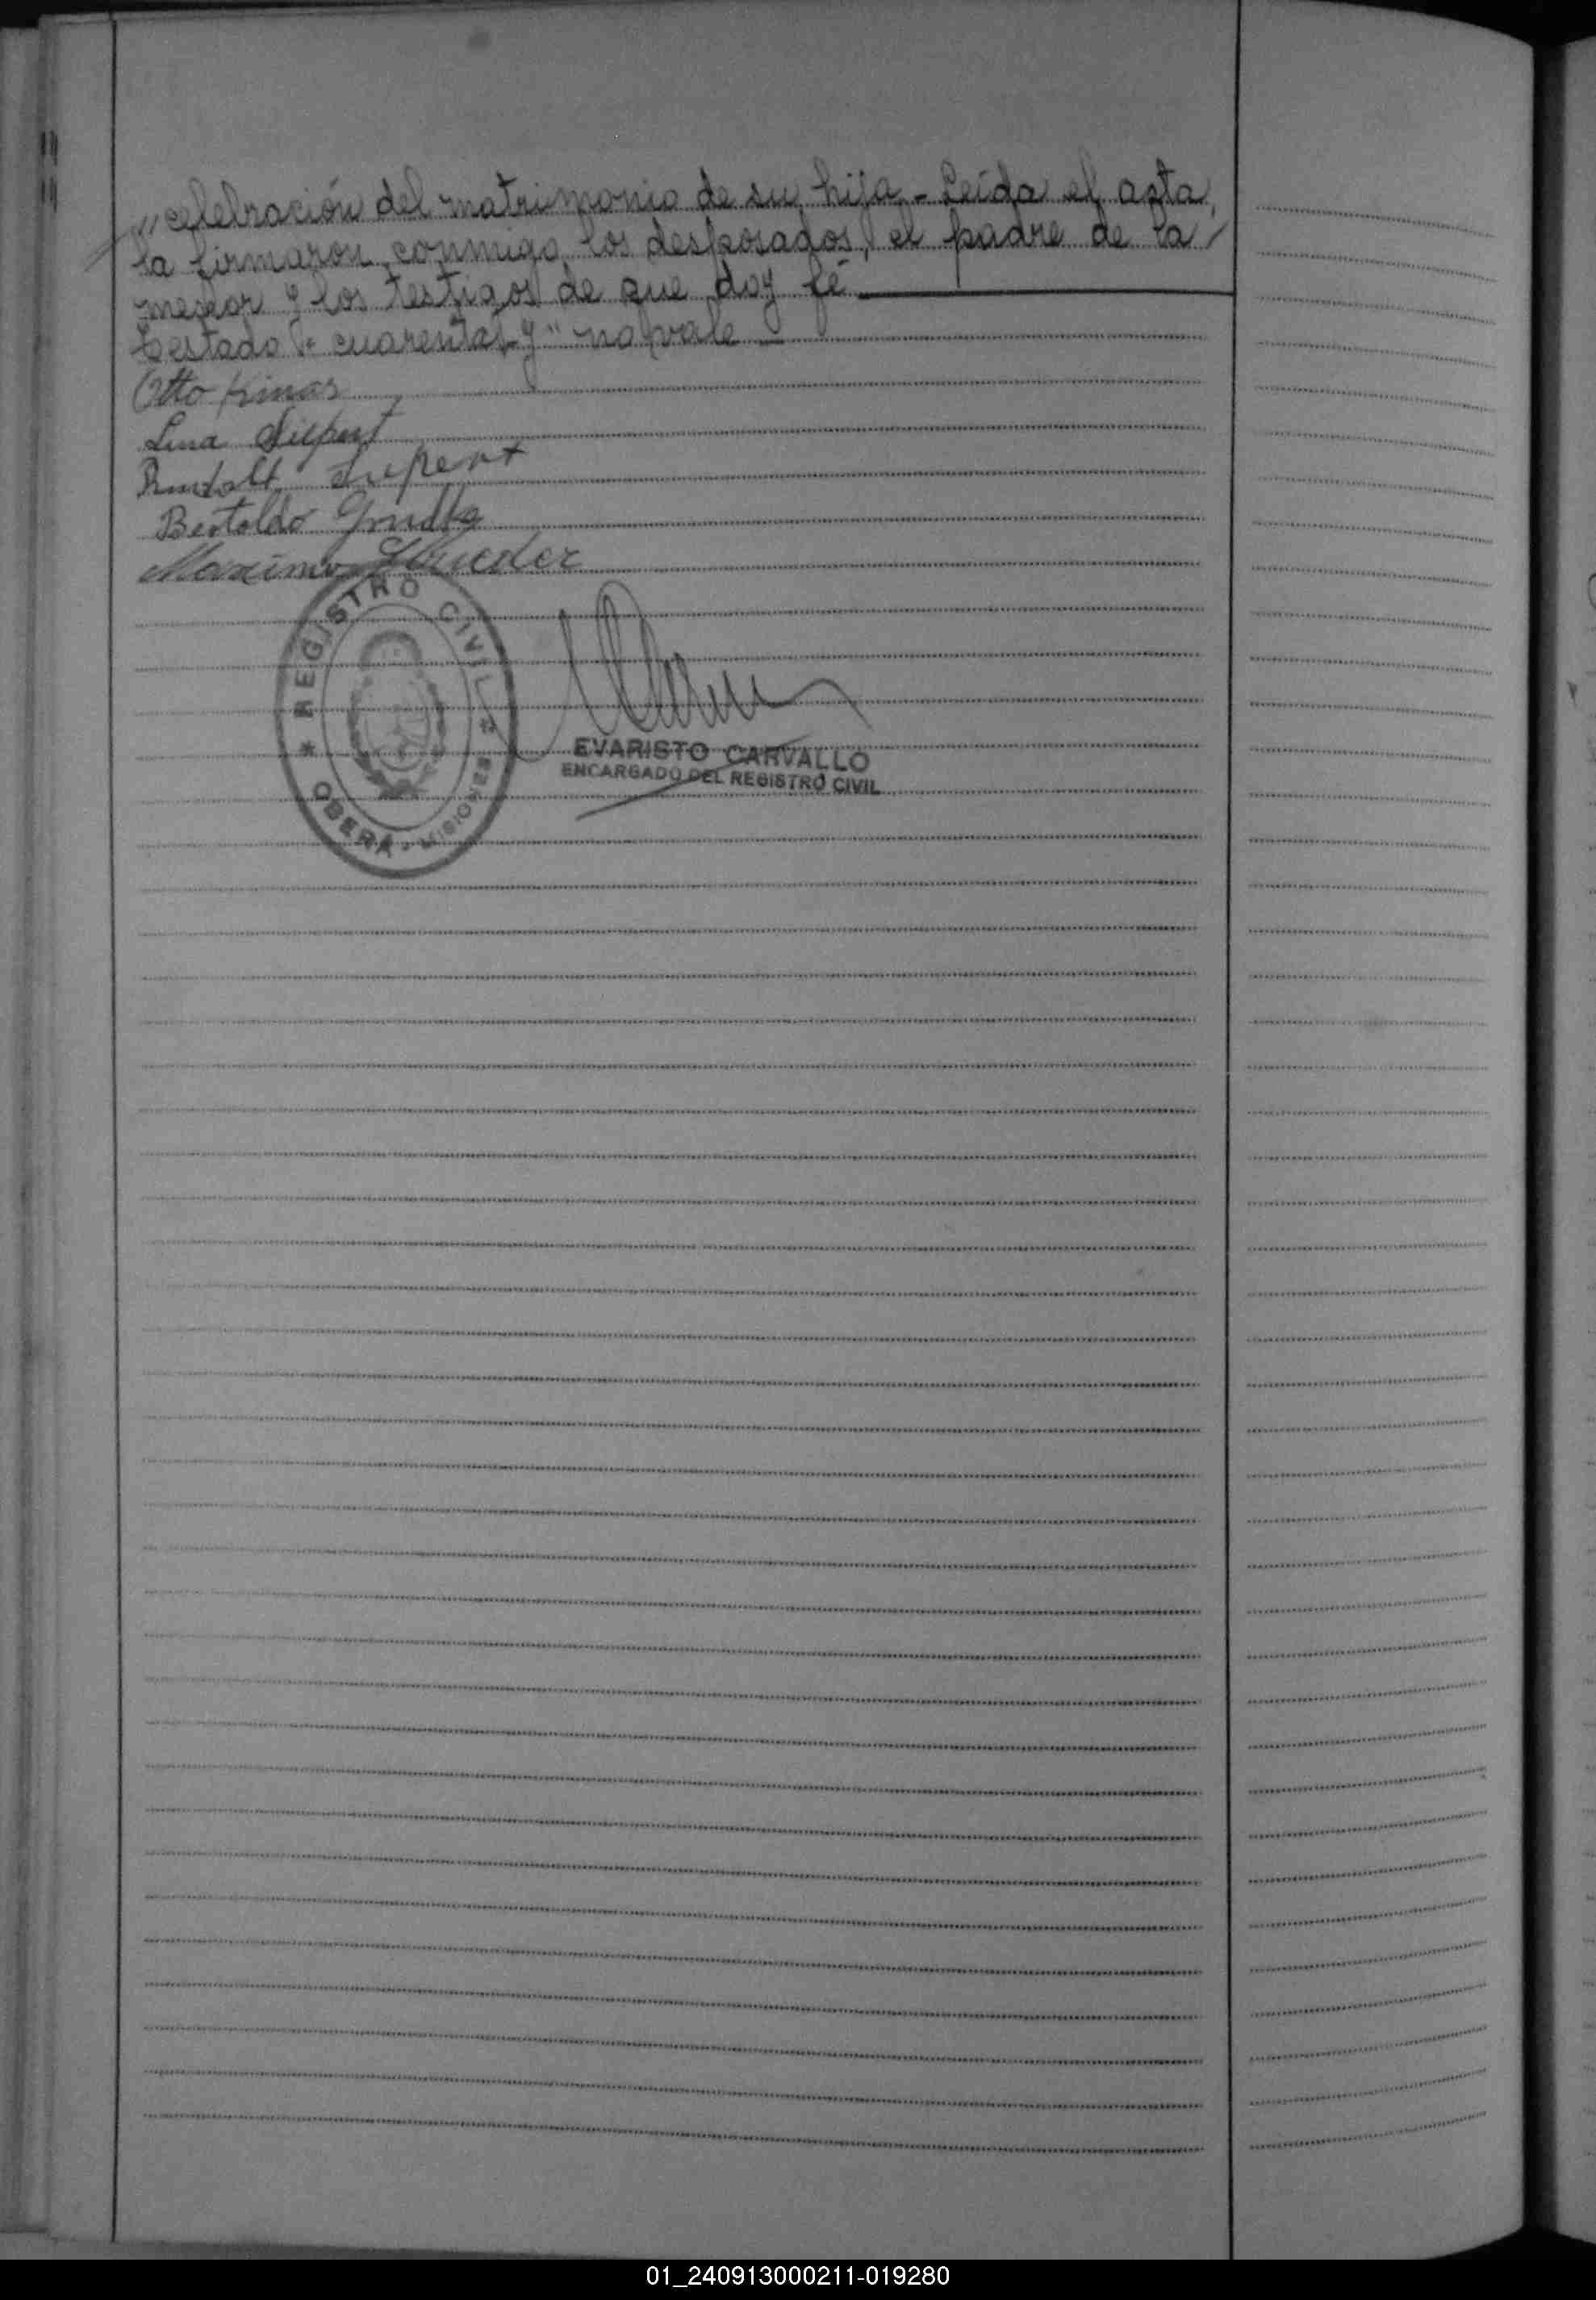 "celebración del matrimonio de su hija.- Leída el acta,
la firmaron conmigo los desposados, el padre de la
menor y los testigos de que doy fé
Testado "cuarenta y" no vale
Otto Kinas
Lina
Rudolf
Bertoldo
Maximo
REGISTRO CIVIL
OBERÁ - MISIONES
EVARISTO CARVALLO
ENCARGADO DEL REGISTRO CIVIL
01_240913000211-019280